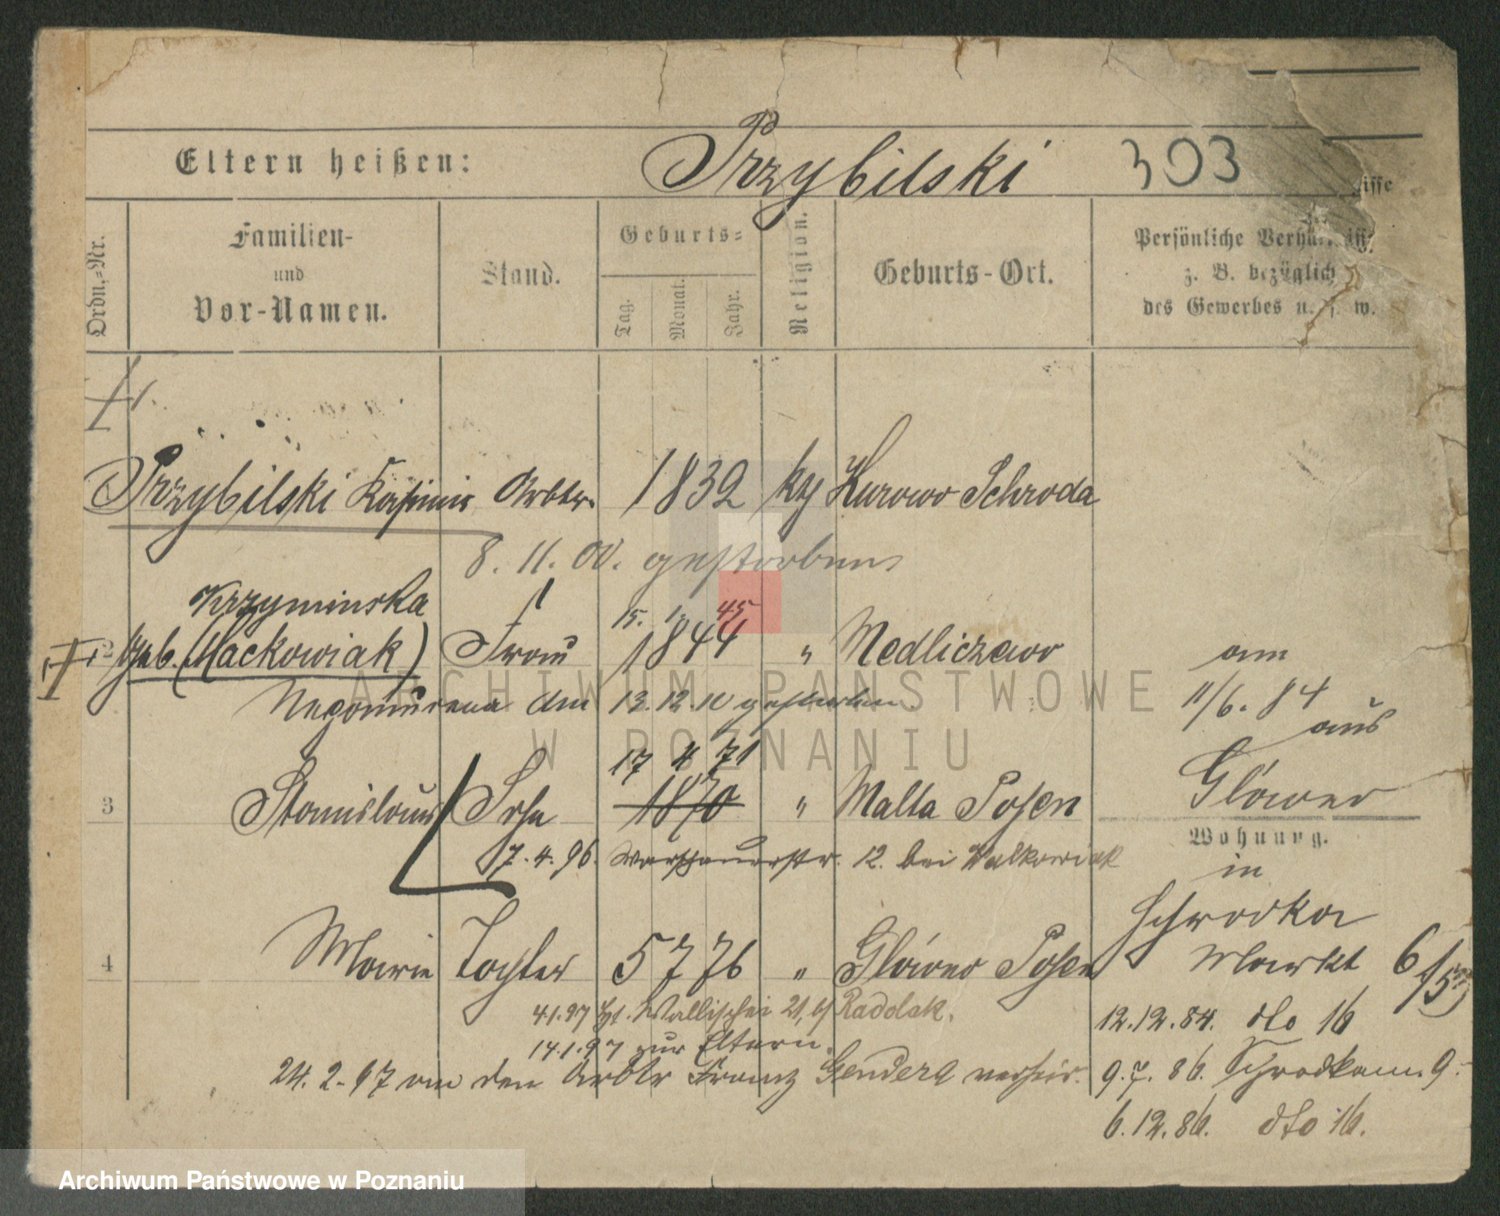 Eltern heißen: Przybilski 303
Ordn.-Nr.
Familien-
und
Vor-Namen.
Stand.
Geburts-
Tag.
Monat.
Jahr.
Religion.
Geburts-Ort.
Persönliche
z. B. bezüglich
des Gewerbes u. s. w.
Przybilski Kasimir Arbtr. 1832 kg Schroda
8. 11. 00. gestorben
Krzyminska 15. 45
2 geb. (Mackowiak) Frau 1844 " Nedliczewo am
11/6. 84
Nepomucena am 13.12.10 gestorben. aus
17 4 71 Glówno
3 Stanislaus Sohn 1870 " Malta Posen
Wohnung.
7.4.96. Warschauerstr. 12. bei Walkowiak in
Schrodka
4 Marie Tochter 5 7 76 " Glówno Posen Markt 6
4.1.97 Wallischei 21, bei Radolak.
12.12.84. dto 16
14.1.97 zur Eltern.
24.2.97 an den Arbtr Franz Gendera verheir. 9.7.86. 9.
6.12.86. dto 16.
ARCHIWUM PAŃSTWOWE
W POZNANIU
Archiwum Państwowe w Poznaniu